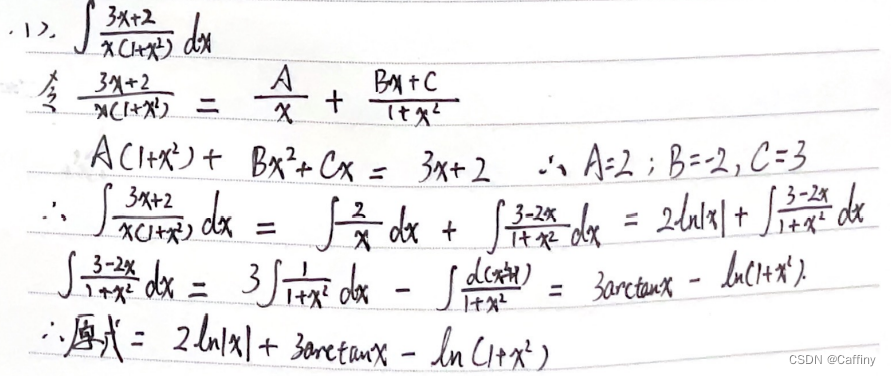 (1). ∫ (3x+2)/(x(1+x²)) dx
令 (3x+2)/(x(1+x²)) = A/x + (Bx+C)/(1+x²)
A(1+x²) + Bx²+Cx = 3x+2 ∴ A=2; B=-2, C=3
∴ ∫ (3x+2)/(x(1+x²)) dx = ∫ 2/x dx + ∫ (3-2x)/(1+x²) dx = 2ln|x| + ∫ (3-2x)/(1+x²) dx
∫ (3-2x)/(1+x²) dx = 3∫ 1/(1+x²) dx - ∫ d(x²+1)/(1+x²) = 3arctanx - ln(1+x²).
∴原式 = 2ln|x| + 3arctanx - ln(1+x²)
CSDN @Caffiny